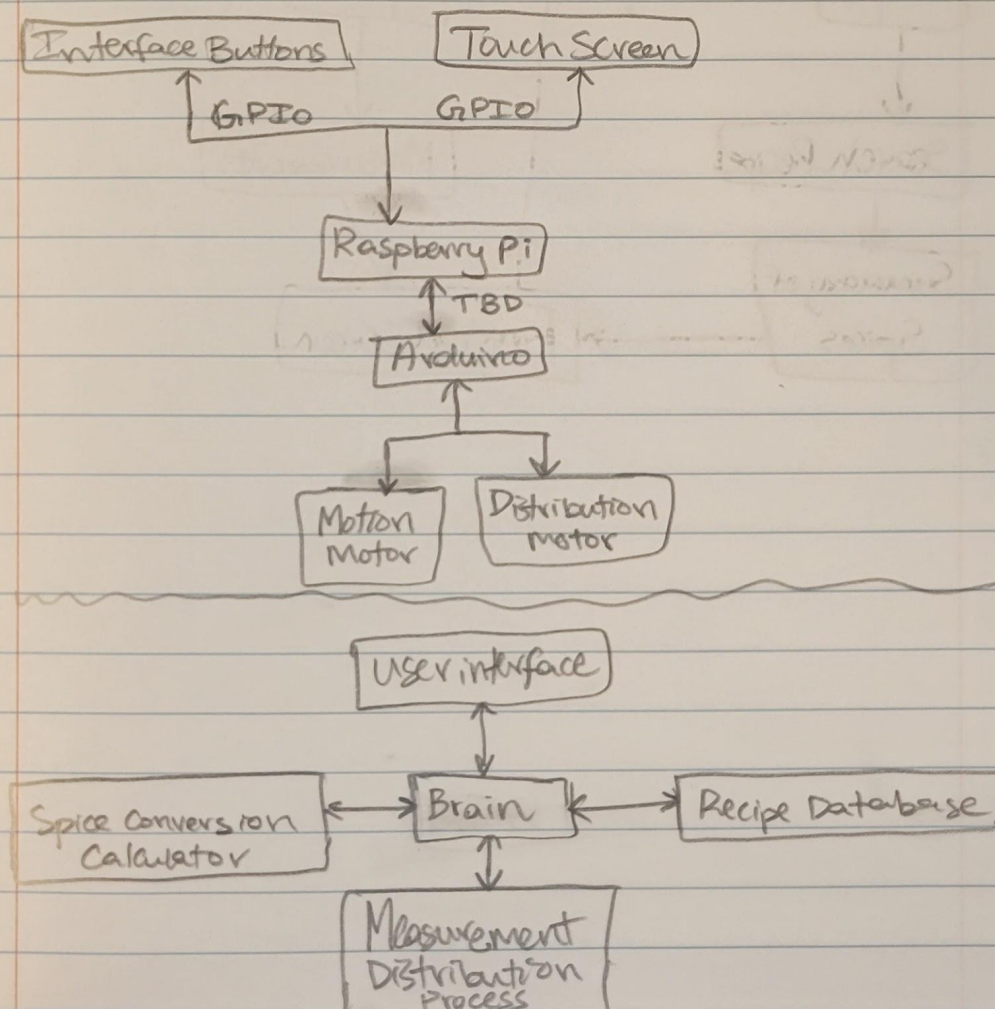 Interface Buttons
Touch Screen
GPIO
GPIO
Raspberry Pi
TBD
Arduino
Motion
Motor
Distribution
motor
User interface
Spice Conversion
Calculator
Brain
Recipe Database
Measurement
Distribution
Process